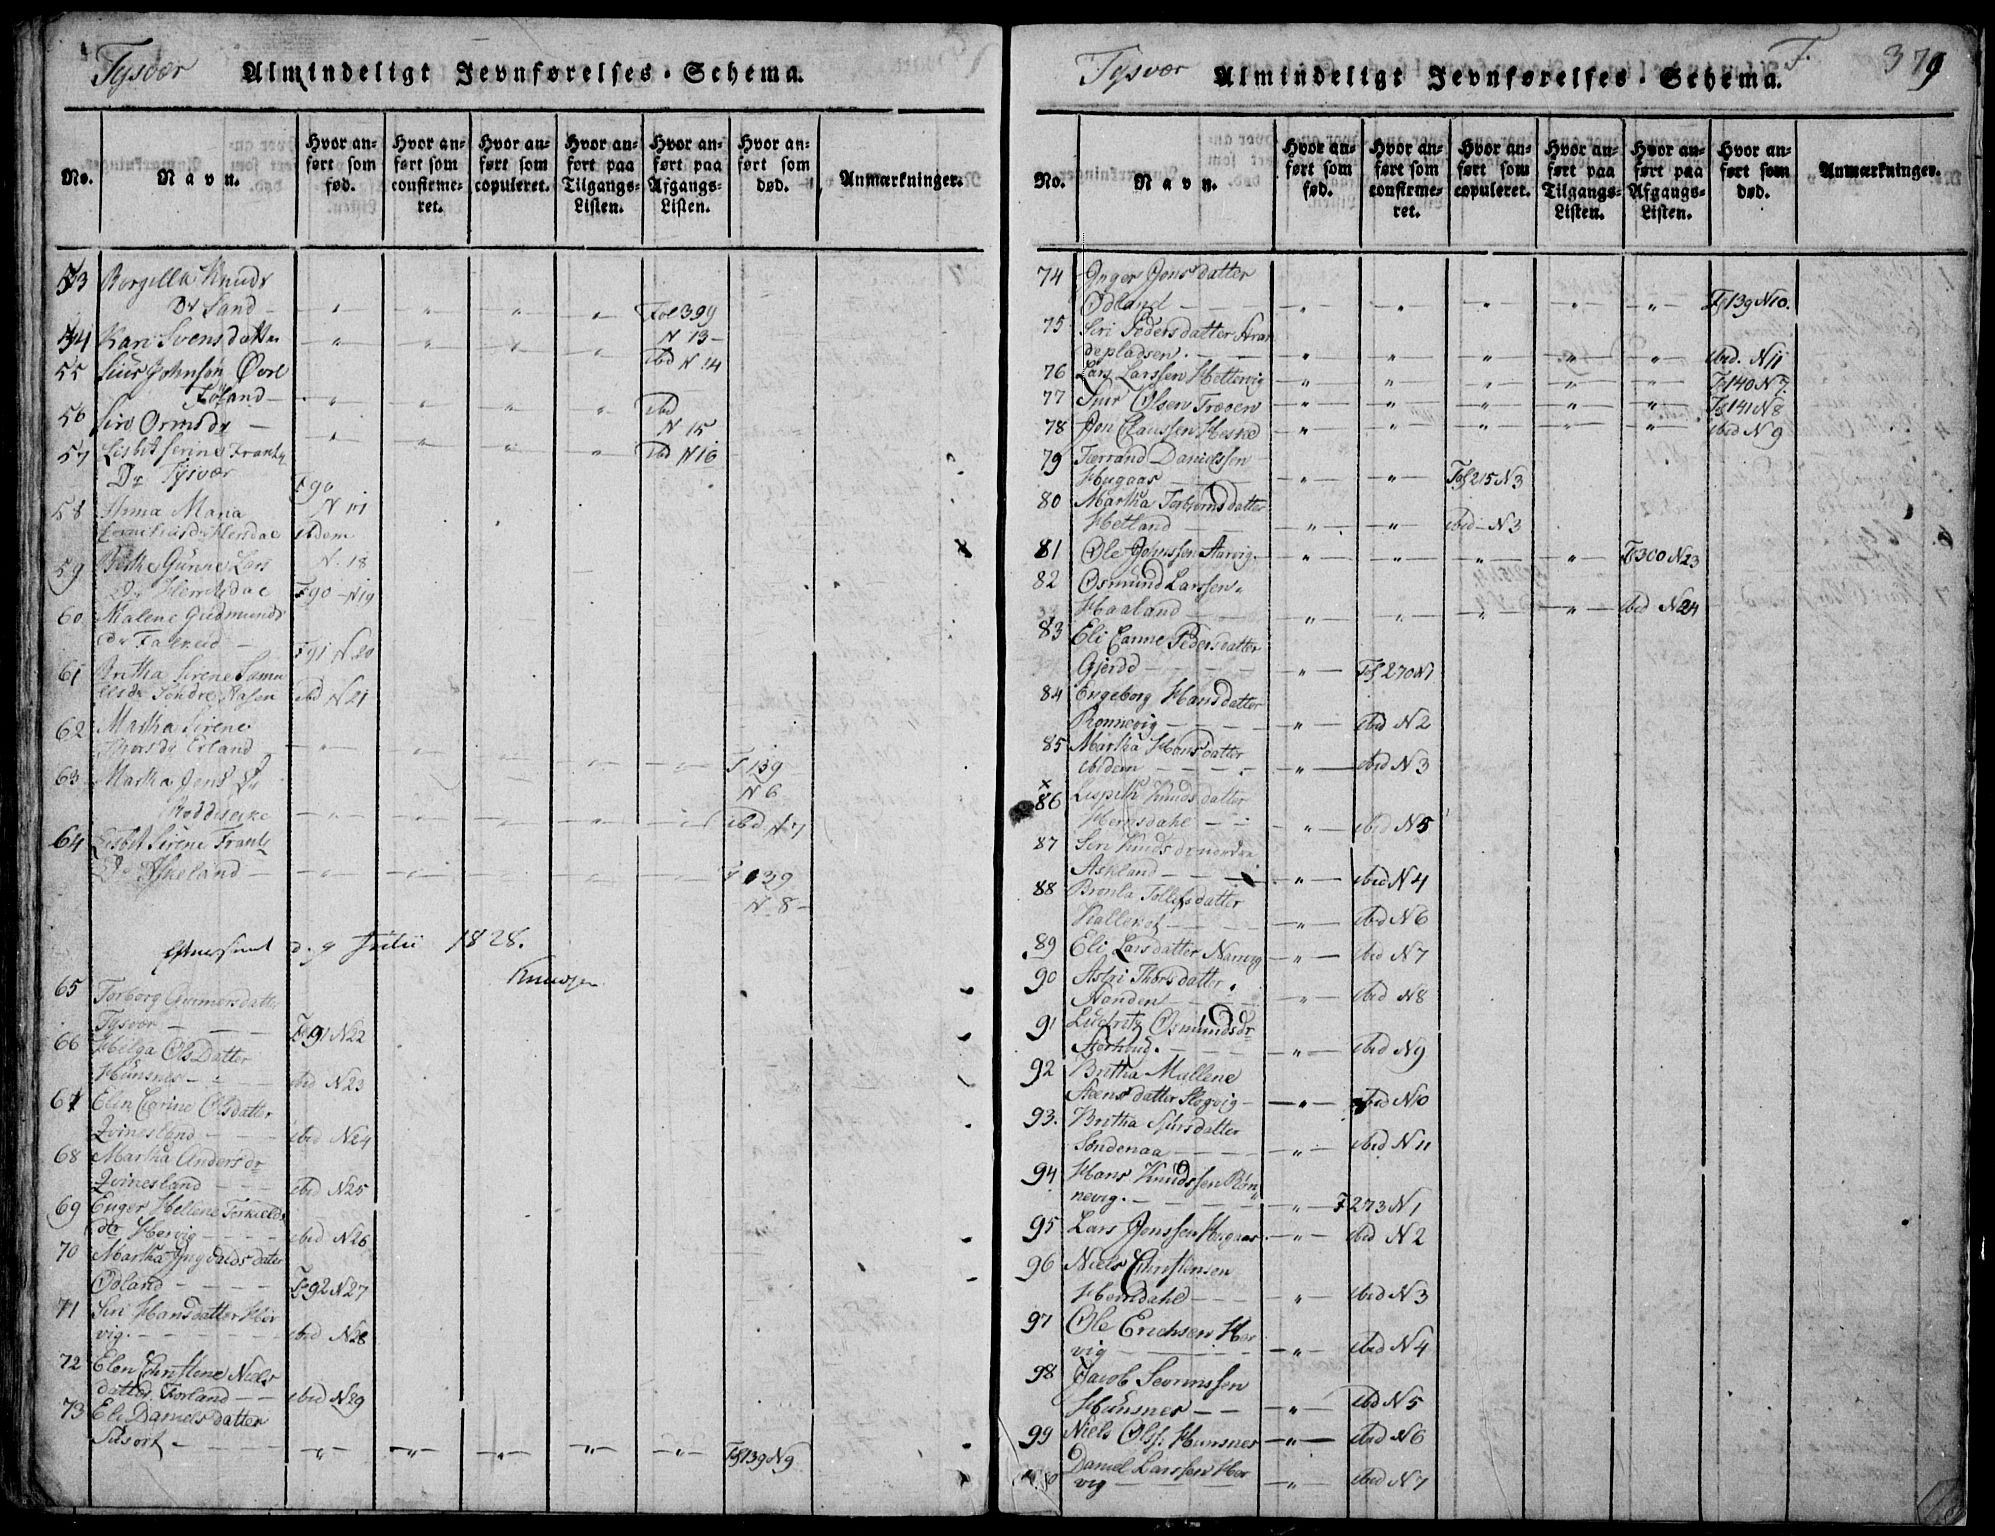 Tysvær Almindeligt Jevnførelses-Schema.
No.
Navn.
Hvor anført som fød.
Hvor anført som confirmeret.
Hvor anført som copuleret.
Hvor anført paa Tilgangs-Listen.
Hvor anført paa Afgangs-Listen.
Hvor anført som død.
Anmærkninger.
53 Borgilla Knuds
Dr Sand - " " " " Fol 399
N 13 -
54 Kari Svensdatter " " " " ibd N 14
55 Siur Johnsøn Øvre
Føland - " " " " ibd
N 15
56 Siri Ormsdr - " " " " ibd N 16
57 Lisbet Serine Frantz
Dr Tysvær F 90
N 17
58 Anna Maria
Corneliusdr Hersdal ibdem
N. 18
59 Berthe Gunne Lars
Dr Hersdal F 90 - N 19
60 Malene Gudmunds
dr Falkeid - F 91 N 20
61 Britha Sirene Samu
elsdr Søndre Nasen ibd N 21
62 Martha Sirene
Thorsdr Erland - " - " F 139
N 6
63 Martha Jens Dr
- " - " - " - " - " ibd N 7
64 Lisbet Sirene Frantz
Dr Askeland - " - " - " - " - " F 139
N. 8 -
d. 9 Julii 1828.
Knudsen
65 Torborg Gunnersdatter
Tysvær - F 91 N 22
66 Helga OlsDatter
Hunsnes - ibd N 23
67 Elen Carine Olsdatter
Qvinesland - ibd N 24
68 Martha Andersdr
Qvinesland - ibd N 25
69 Enger Hellene Terkields
dr Hervig - ibd N 26
70 Martha Ingvaldsdatter
Ødland - Fg 92 N 27
71 Siri Hansdatter Hør
vig. - ibd N 28
72 Elen Christene Niels
datter Førland - ibd N 29
73 Eli Danielsdatter
Susort - " " " " " Fg 139 N 9
Tysvær Almindeligt Jevnførelses-Schema. F. 379
No.
Navn.
Hvor anført som fød.
Hvor anført som confirmeret.
Hvor anført som copuleret.
Hvor anført paa Tilgangs-Listen.
Hvor anført paa Afgangs-Listen.
Hvor anført som død.
Anmærkninger.
74 Inger Jonsdatter
Ødland - " " " " " Fg 139 N 10.
75 Siri Pedersdatter Stran
depladsen. " " " " " ibid. N 11
76 Lars Larssen Hettervig " " " " " Fg 140 N 7
77 Siur Olsen Træoen " " " " " Fg 141 N 8
78 Jon Claussen Heske " " " " " ibid N 9
79 Tærrand Danielssen
Hugaas - " " Fol 215 N 3
80 Martha Torbjørnsdatter
Hetland - " " ibid - N 3
81 Ole Johnssen Aarvig. " " " " F 300 N 23
82 Osmund Larssen
Haaland - " " " " ibid N 24
83 Eli Canne Pedersdatter
Gjerde - " Fol 270 N 1
84 Engeborg Hansdatter
Rønnevig - " ibid N 2
85 Martha Hansdatter
ibidem - " ibid N 3
x
86 Lispeth Knudsdatter
Hersdahl - " ibid N 5
87 Siri Knudsdr nordre
Askland - " ibid N 4
88 Bronla Tollefsdatter
- " ibid N 6
89 Eli Larsdatter Narvig - " ibid N 7
90 Astri Thorsdatter
Nanden - " ibid N 8
91 Osmundsdr
Storhoug. - " ibid N 9
92 Britha Mallene
Steensdatter Slogvig - " ibid N 10
93. Britha Siursdatter
Søndenaa - " ibid N 11
94 Hans Knudssen Røn
nevig. - " F 273 N 1
95 Lars Jonssen Hugaas - " ibid N 2
96 Niels Christensen
Hersdahl - " ibid N 3
97 Ole Erichsen Hør
vig - " ibid N 4
98 Jacob Sørenssen
Hunsnes - " ibid N 5
99 Niels Olss: Hunsnes - " ibid N 6
Daniel Larssen Hør
vig - " ibid N 7